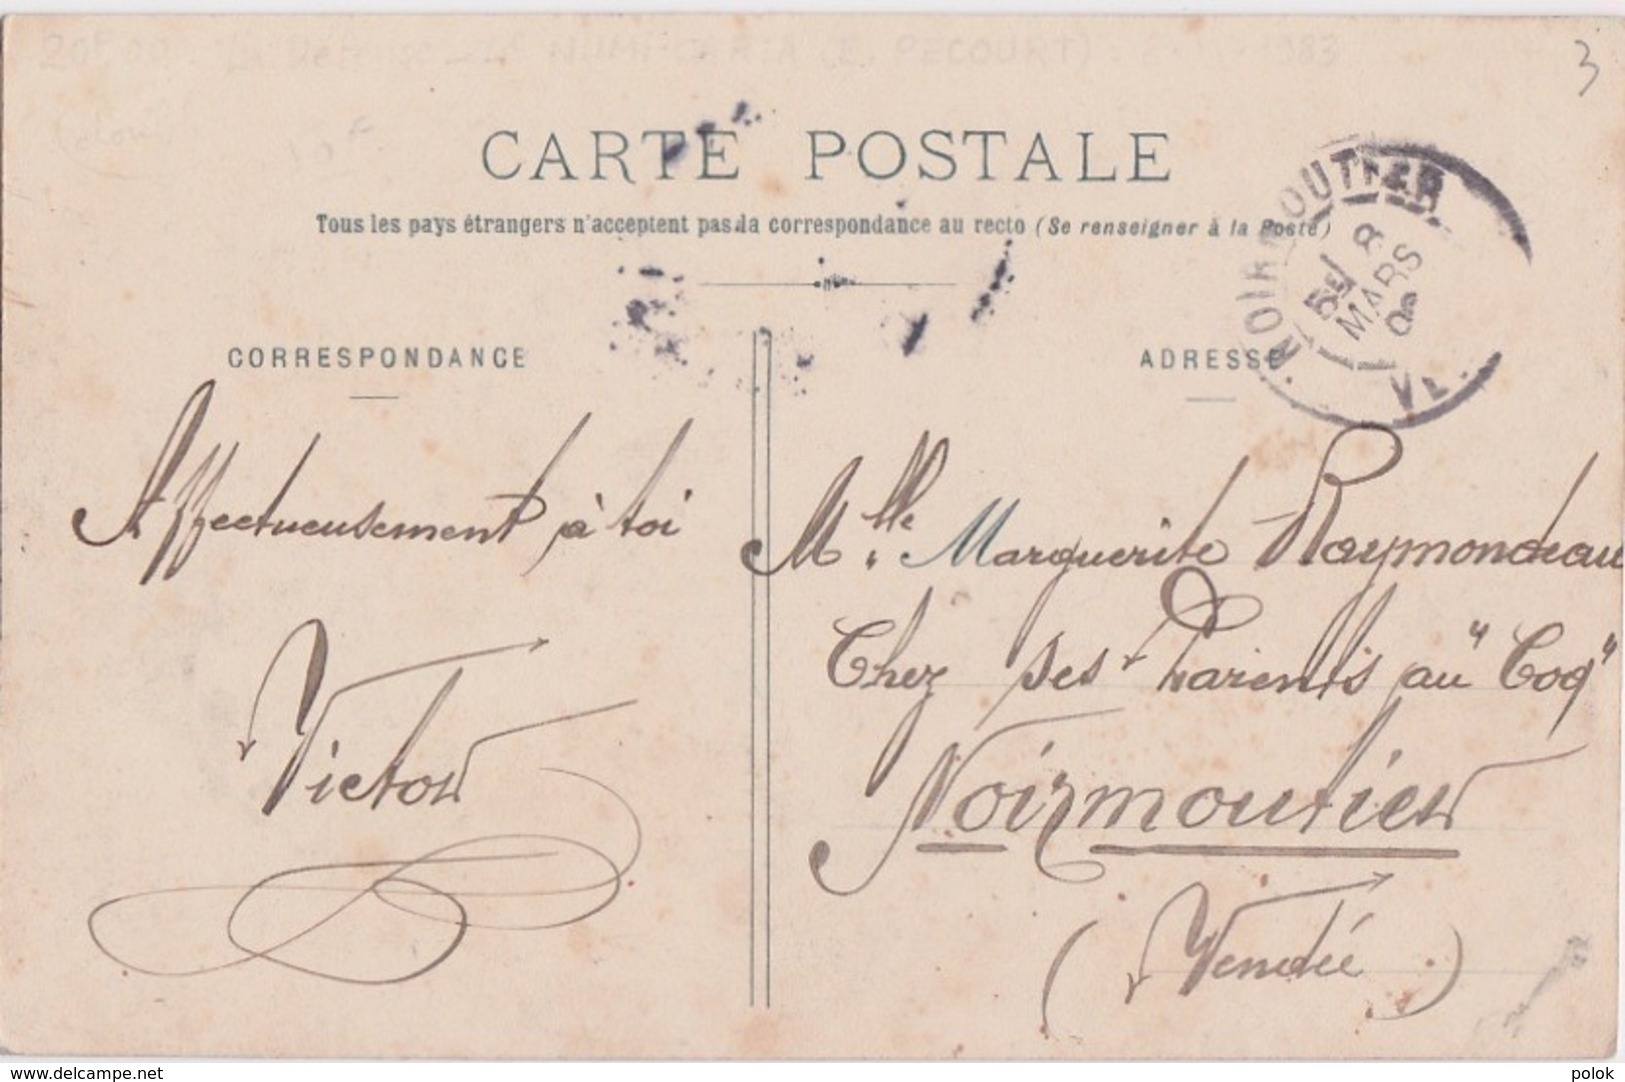 3
CARTE POSTALE
Tous les pays étrangers n'acceptent pas la correspondance au recto (Se renseigner à la Poste)
NOIRMOUTIER
8
MARS
CORRESPONDANCE
ADRESSE
Affectueusement à toi
Victor
Mlle Marguerite Raymondeau
Chez ses Parents au "Coq"
Noirmoutier
(Vendée)
www.delcampe.net
polok